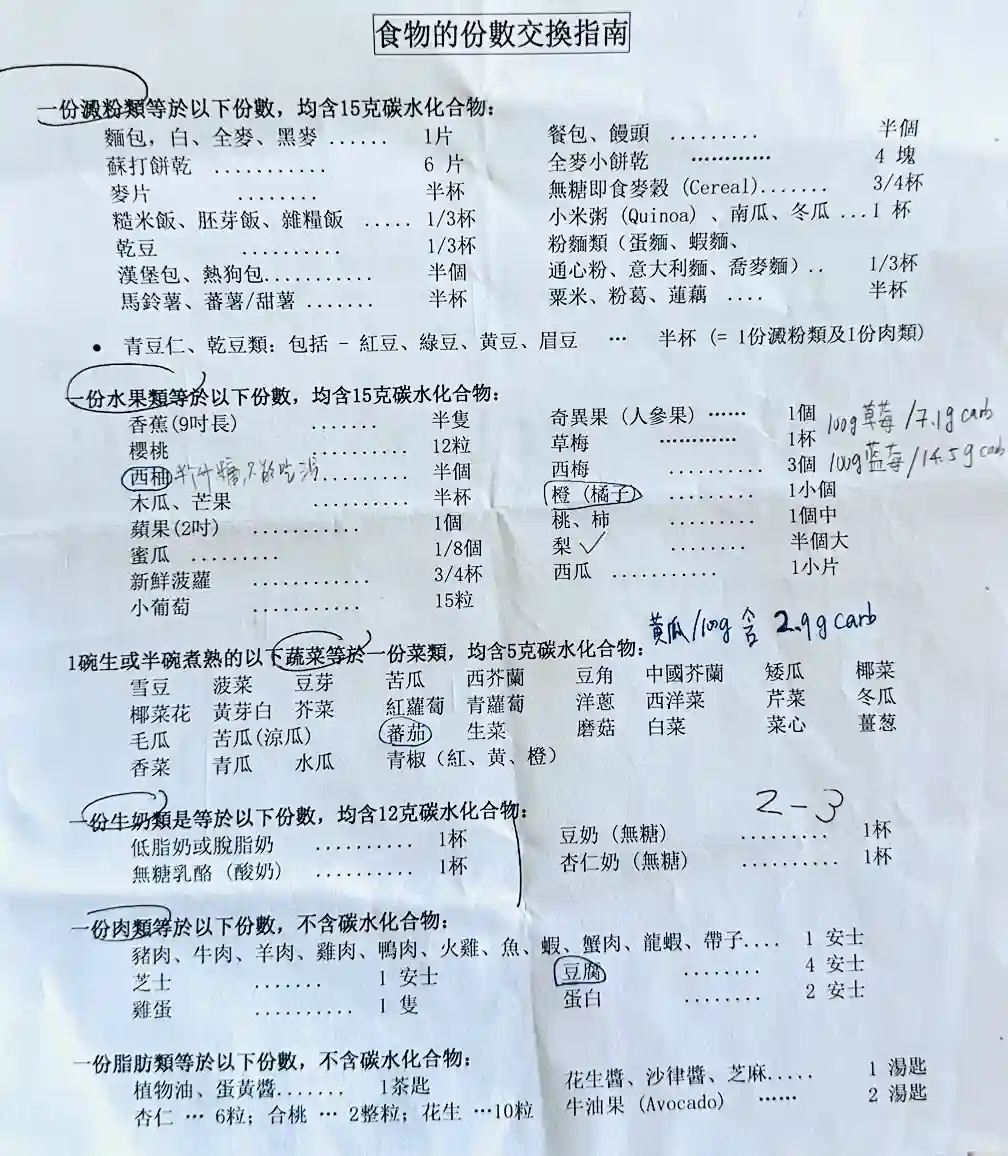 食物的份數交換指南
一份澱粉類等於以下份數，均含15克碳水化合物：
麵包，白、全麥、黑麥 ...... 1片 餐包、饅頭 ......... 半個
蘇打餅乾 ........... 6 片 全麥小餅乾 ............ 4 塊
麥片 ........ 半杯 無糖即食麥穀 (Cereal)....... 3/4杯
糙米飯、胚芽飯、雜糧飯 ..... 1/3杯 小米粥 (Quinoa) 、南瓜、冬瓜 ...1 杯
乾豆 .......... 1/3杯 粉麵類（蛋麵、蝦麵、
漢堡包、熱狗包........... 半個 通心粉、意大利麵、喬麥麵）.. 1/3杯
馬鈴薯、蕃薯/甜薯 ....... 半杯 粟米、粉葛、蓮藕 .... 半杯
• 青豆仁、乾豆類：包括 - 紅豆、綠豆、黄豆、眉豆 … 半杯 (= 1份澱粉類及1份肉類)
一份水果類等於以下份數，均含15克碳水化合物：
香蕉(9吋長) ....... 半隻 奇異果 (人參果) …… 1個
100g草莓/7.1g carb
櫻桃 .......... 12粒 草梅 ………… 1杯
100g蓝莓/14.5g carb
西柚 .......... 半個 西梅 .......... 3個
木瓜、芒果 .......... 半杯 橙 (橘子) ......... 1小個
蘋果(2吋) ........... 1個 桃、柿 ......... 1個中
蜜瓜 ......... 1/8個 梨 ✓ ........ 半個大
新鮮菠蘿 ............ 3/4杯 西瓜 ........... 1小片
小葡萄 ........... 15粒
黄瓜/100g 含 2.9g carb
1碗生或半碗煮熟的以下蔬菜等於一份菜類，均含5克碳水化合物：
雪豆 菠菜 豆芽 苦瓜 西芥蘭 豆角 中國芥蘭 矮瓜 椰菜
椰菜花 黃芽白 芥菜 紅蘿蔔 青蘿蔔 洋蔥 西洋菜 芹菜 冬瓜
毛瓜 苦瓜(涼瓜) 蕃茄 生菜 磨菇 白菜 菜心 薑葱
香菜 青瓜 水瓜 青椒（紅、黄、橙）
2-3
一份牛奶類是等於以下份數，均含12克碳水化合物：
低脂奶或脫脂奶 .......... 1杯 豆奶 (無糖) ......... 1杯
無糖乳酪 (酸奶) .......... 1杯 杏仁奶 (無糖) .......... 1杯
一份肉類等於以下份數，不含碳水化合物：
豬肉、牛肉、羊肉、雞肉、鴨肉、火雞、魚、蝦、蟹肉、龍蝦、帶子.... 1 安士
芝士 ....... 1 安士 豆腐 ........ 4 安士
雞蛋 .......... 1 隻 蛋白 ........ 2 安士
一份脂肪類等於以下份數，不含碳水化合物：
植物油、蛋黃醬....... 1茶匙 花生醬、沙律醬、芝麻..... 1 湯匙
杏仁 … 6粒; 合桃 … 2整粒; 花生 …10粒 牛油果 (Avocado) …… 2 湯匙